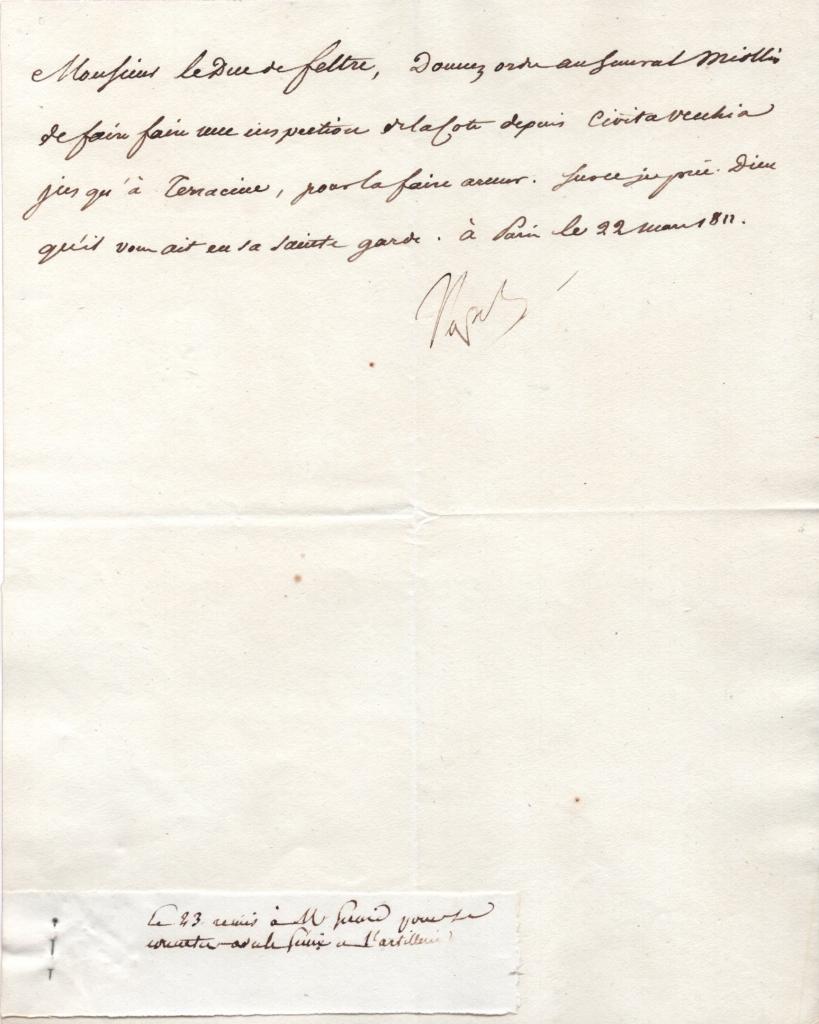 Monsieur le Duc de feltre, Donnez ordre au Général Miollis
de faire faire une inspection de la Cote depuis Civita vecchia
jusqu'à Terracine, pour la faire armer. Sur ce je prie Dieu
qu'il vous ait en sa sainte garde. à Paris le 22 mars 1811.
Nap
Le 23 remis à Mr pour se
avec le Génie et l'artillerie